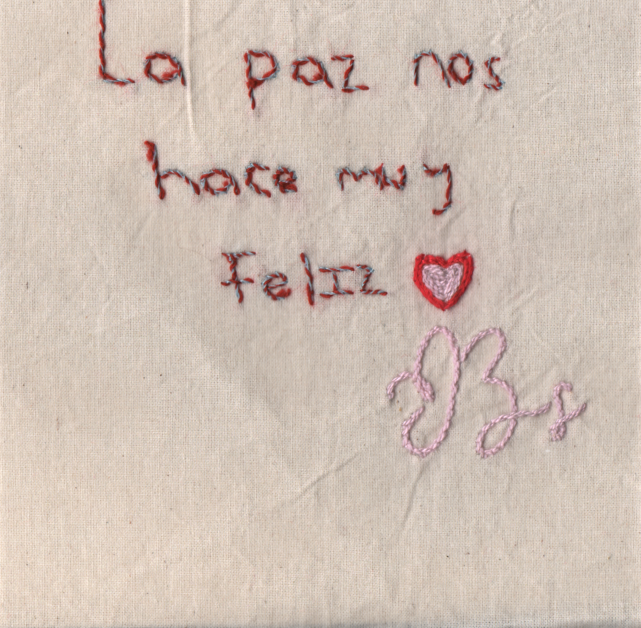 La paz nos
hace muy
Feliz
Bs